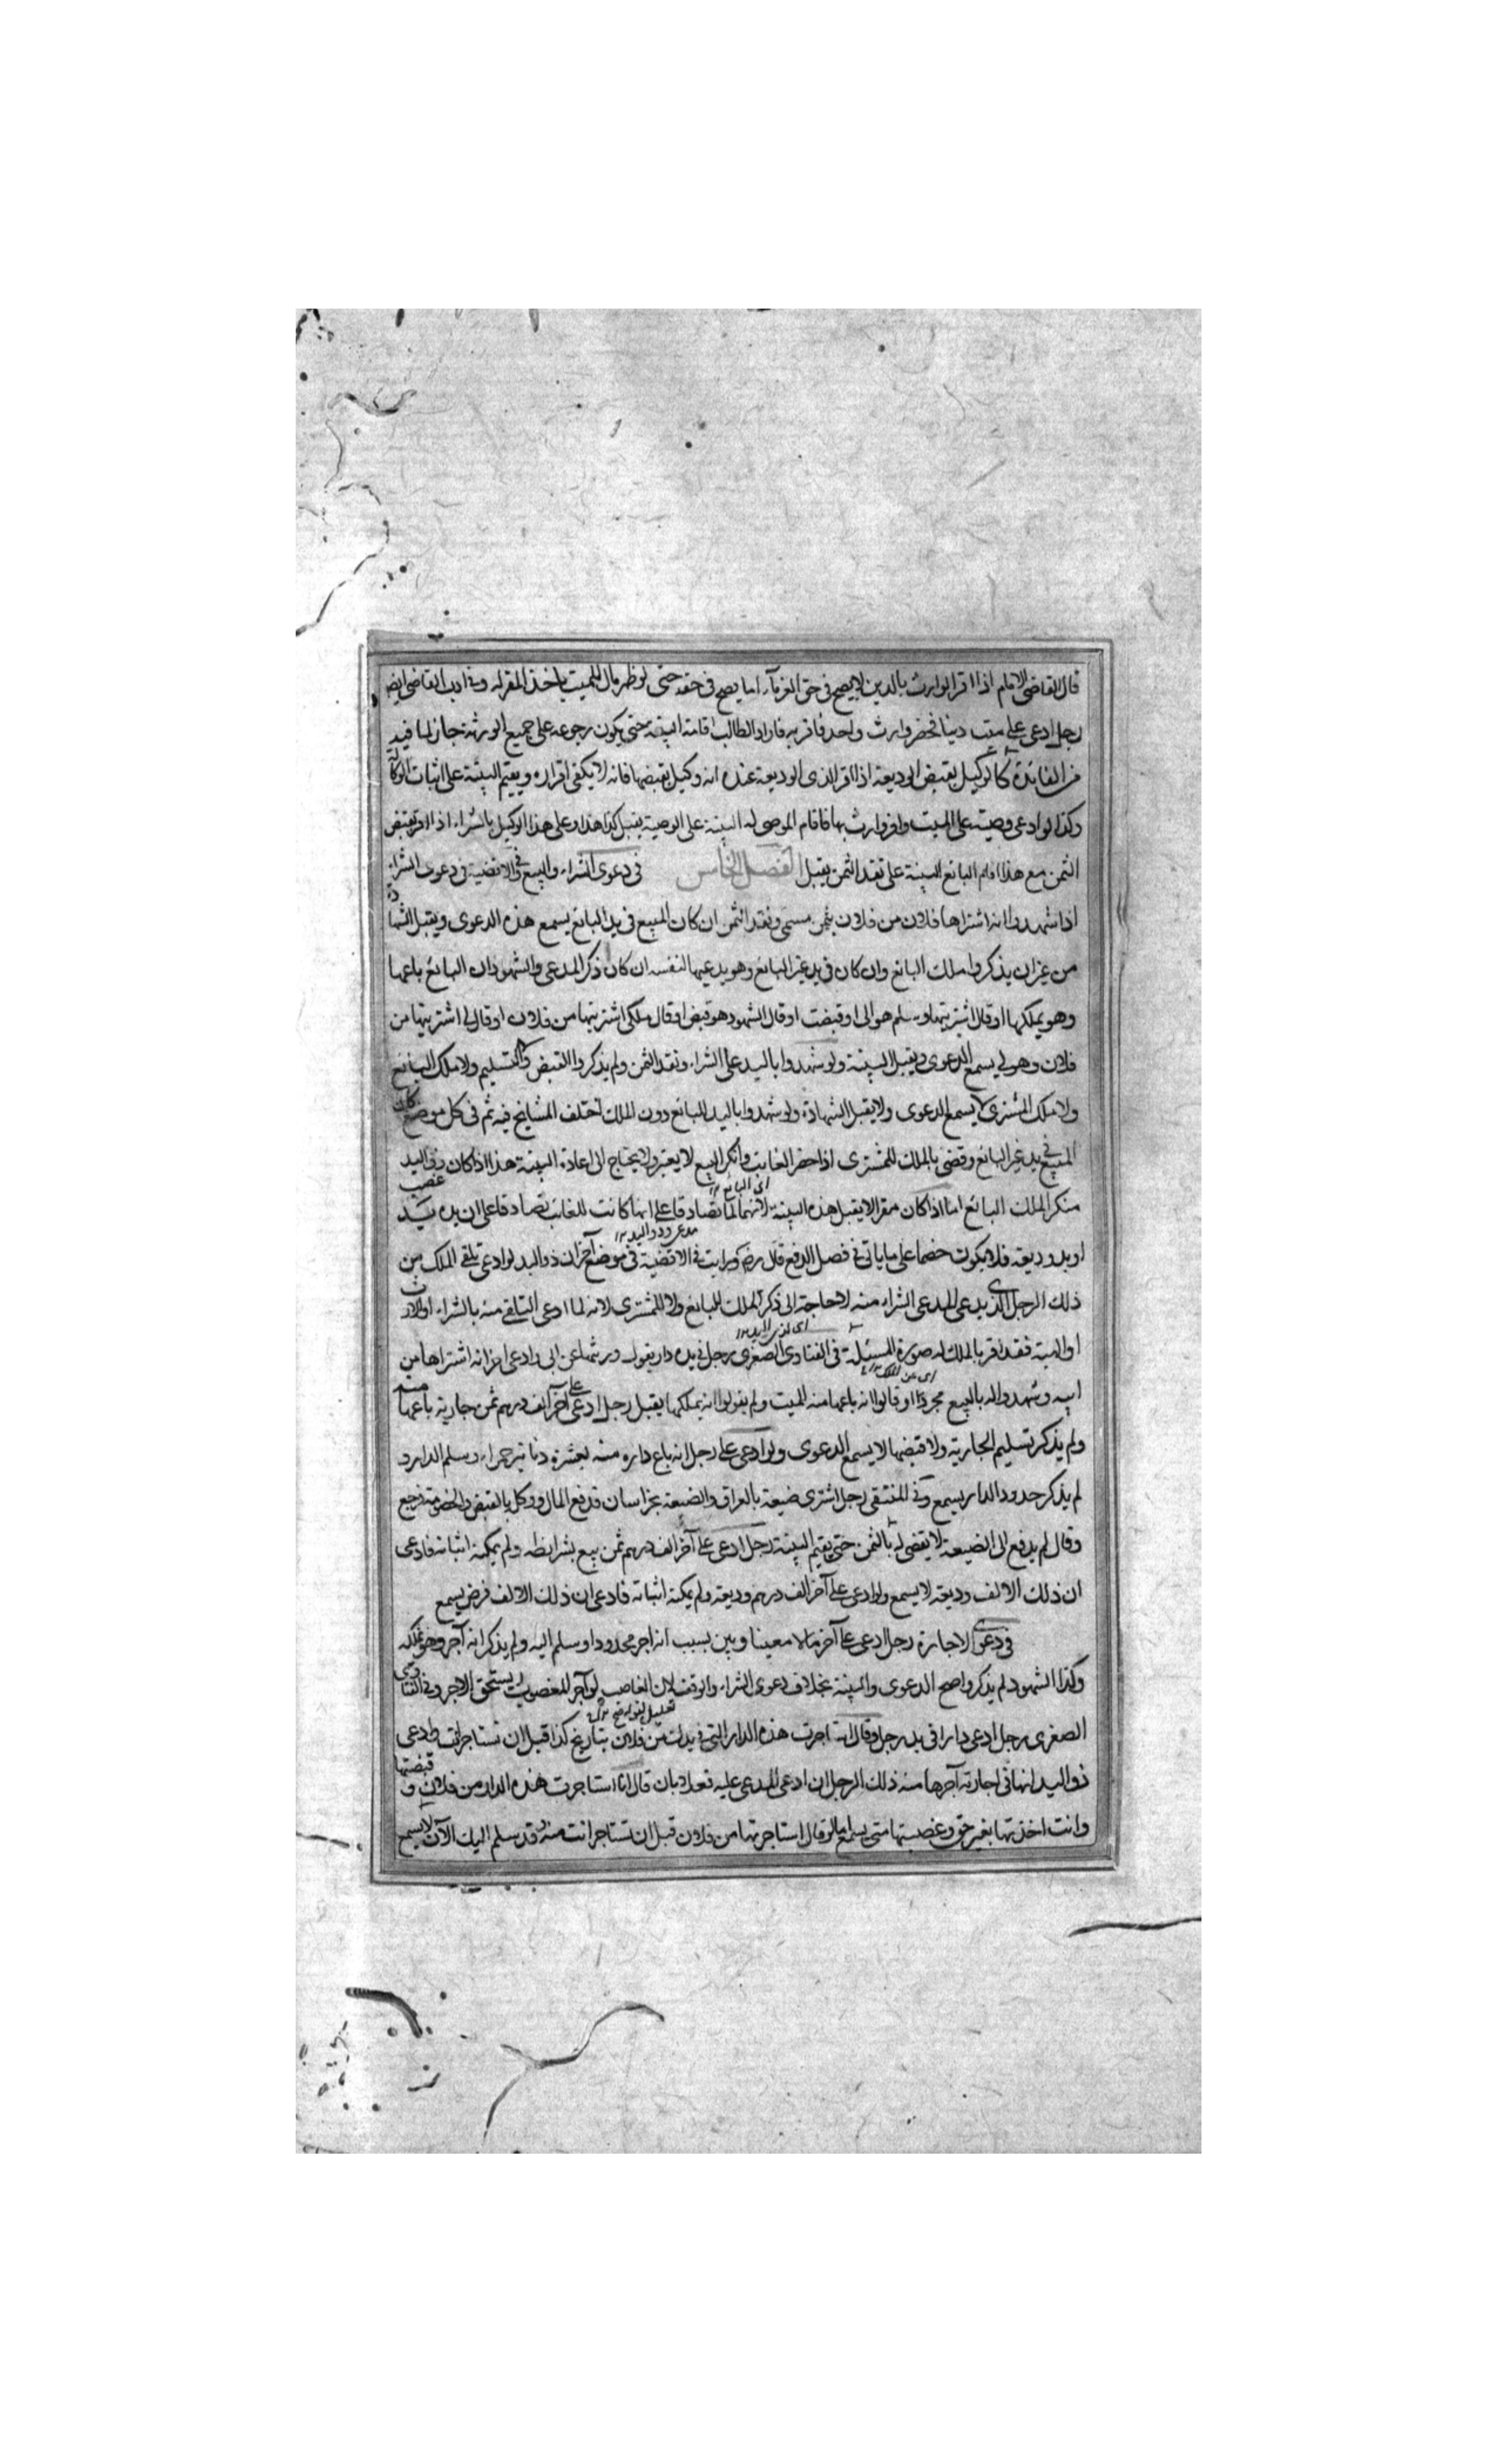 قال القاضى الامام اذا اقر الوارث بالدين لا يصح فى حق الغرماء انما يصح فى حقه حتى لو ظهر مال للميت ياخذ المقر له وفى ادب القاضى ايضا
رجل ادعى على ميت دينا فحضر وارث واحد فاقر به فاراد الطالب اقامة البينة حتى يكون رجوعه على جميع الورثة جاز لما فيه
من الفائدة كالوكيل بقبض الوديعة اذا اقر الذى الوديعة عنده انه وكيل بقبضها فانه لا يكفى اقراره ويقيم البينة على اثبات الوكالة
وكذا لو ادعى وصية على الميت واقر وارث بها فاقام الموصى له البينة على الوصية يقبل كذا هذا وعلى هذا الوكيل بالشراء اذا اقر بقبض
الثمن مع هذا اقام البائع البينة على نقد الثمن يقبل الفصل الخامس فى دعوى الشراء والبيع فى الاقضية فى دعوى الشراء
اذا شهدوا انه اشتراها فلان من فلان بثمن مسمى ونقد الثمن ان كان المبيع فى يد البائع يسمع هذه الدعوى ويقبل الشهادة
من غير ان يذكروا ملك البائع وان كان فى يد غير البائع وهو يدعيها لنفسه ان كان ذكر المدعى والشهود ان البائع باعها
وهو يملكها او قال اشتريتها وسلم هو الى او قبضت او قال الشهود هو قبض او قال ملكى اشتريتها من فلان او قال لى اشتريتها من
فلان وهو لى يسمع الدعوى ويقبل البينة ولو شهدوا باليد على الشراء ونقد الثمن ولم يذكروا القبض والتسليم ولا ملك البائع
ولا ملك المشترى لا يسمع الدعوى ولا يقبل الشهادة ولو شهدوا باليد للبائع دون الملك اختلف المشايخ فيه ثم فى كل موضع كان
المبيع فى يد غير البائع وقضى بالملك للمشترى اذا حضر الغائب وانكر البيع لا يعتبر ولا يحتاج الى اعادة البينة هذا اذا كان ذو اليد
منكر الملك البائع اما اذا كان مقرا لا يقبل هذه البينة لانهما لما تصادقا على انها كانت للغائب تصادقا على ان يده يد غصب
اى البائع
او يد وديعة فلا يكون خصما على ما ياتى فى فصل الدفع قال رضه ورايت فى الاقضية فى موضع آخر ان ذو اليد لو ادعى تلقى الملك من
مدعى ذو اليد
ذلك الرجل الذى يدعى المدعى الشراء منه لا حاجة الى ذكر الملك للبائع ولا للمشترى لانه لما ادعى التلقى منه بالشراء او الارث
او الهبة فقد اقر بالملك له صورة المسئلة فى الفتاوى الصغرى رجل فى يده دار يقول ورثتها عن ابى وادعى آخر انه اشتراها من
ابيه وشهدوا له بالبيع مجردا او قالوا انه باعها منه الميت ولم يقولوا انه يملكها يقبل رجل ادعى على آخر الف درهم ثمن جارية باعها منه
ولم يذكر تسليم الجارية ولا قبضها لا يسمع الدعوى ولو ادعى على رجل انه باع داره منه بعشرة دنانير حمراء وسلم الدار و
لم يذكر حدود الدار يسمع وفى المنتقى رجل اشترى ضيعة بالعراق والضيعة بخراسان فدفع المال ووكل بالقبض والخصومة رجع
وقال لم يدفع الى الضيعة لا يقضى له بالثمن حتى يقيم البينة رجل ادعى على آخر الف درهم ثمن بيع بشرائطه ولم يمكنه اثباته فادعى
ان ذلك الالف وديعة لا يسمع ولو ادعى على آخر الف درهم وديعة ولم يمكنه اثباته فادعى ان ذلك الالف قرض يسمع
فى دعوى الاجارة رجل ادعى على آخر مالا معينا وبين بسبب انه اجر محدودا وسلم اليه ولم يذكر انه آجر وهو يملكه
وكذا الشهود لم يذكروا صح الدعوى والبينة بخلاف دعوى الشراء والوقف لان الغاصب لو آجر المغصوب يستحق الاجر وفى الفتاوى
الصغرى رجل ادعى دارا فى يد رجل وقال انه اجرت هذه الدار التى فى يدك من فلان بتاريخ كذا قبل ان تستاجر انت وادعى
ذو اليد انها فى اجارته آجرها منه ذلك الرجل ان ادعى المدعى عليه فعلا بان قال انا استاجرت هذه الدار من فلان وقبضتها
وانت اخذتها بغير حق وغصبتها منى يسمع اما لو قال استاجرتها من فلان قبل ان تستاجر انت منه وقد سلم اليك الآن لا يسمع